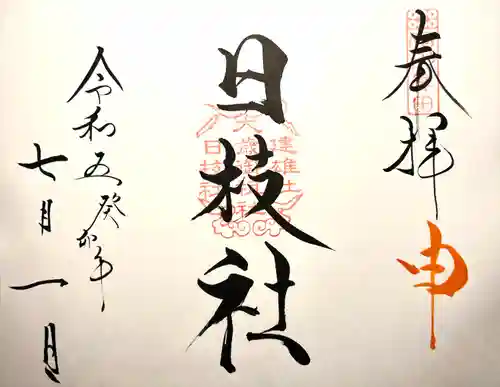 奉拝
申
日枝社
建雄社
日枝社
令和五癸卯年
七月一日